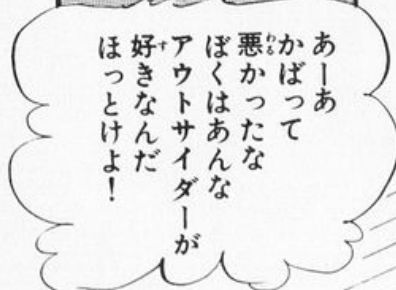 あーあ
かばって
悪かったな
ぼくはあんな
アウトサイダーが
好きなんだ
ほっとけよ！